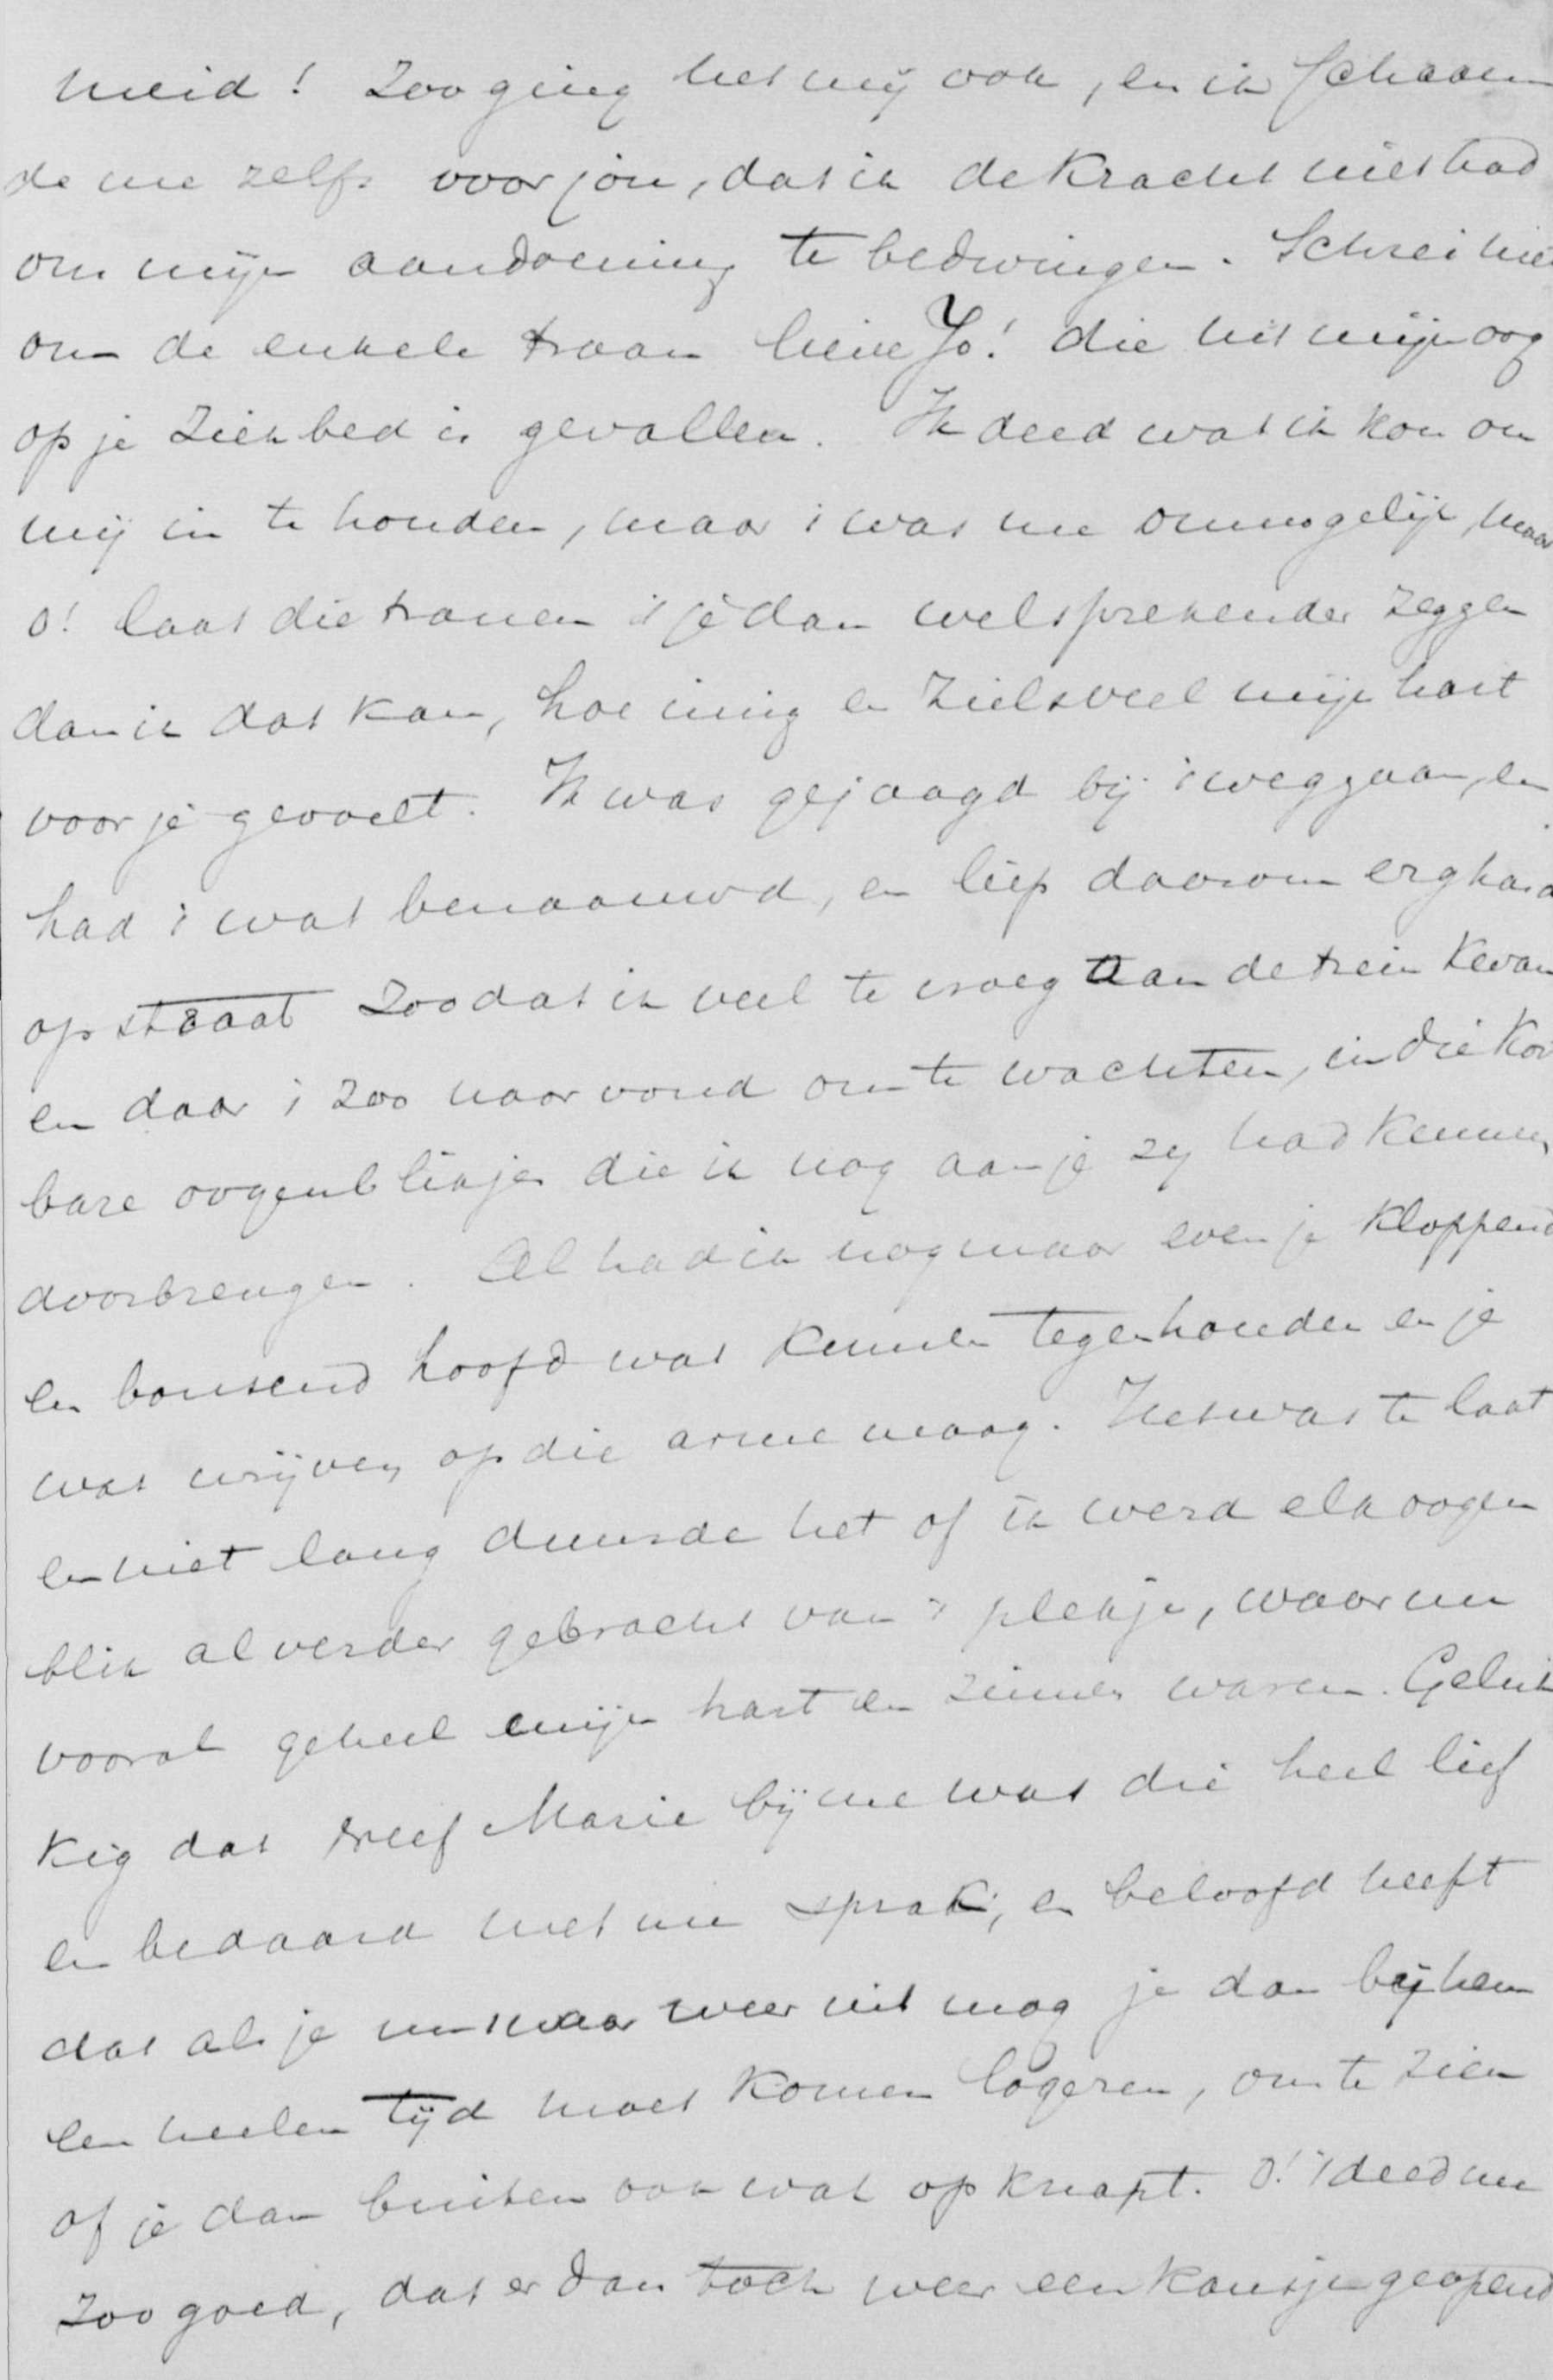 meid! Zoo ging het mij ook, en ik schaam
de me zelfs voor jou, dat ik de kracht niet had
om mijn aandoening te bedwingen. Schrei niet
om de enkele traan lieve Jo! die uit mijn oog
op je ziekbed is gevallen. Ik deed wat ik kon om
mij in te houden, maar 't was me onmogelijk, maar
o! laat die tranen 't je dan welsprekender zeggen
dan ik dat kan, hoe innig en zielsveel mijn hart
voor je gevoelt. Ik was gejaagd bij 't weggaan, en
had 't wat benaauwd, en liep daarom erg hard
op straat zoodat ik veel te vroeg aan de trein kwam
en daar 't zoo naar vond om te wachten, in die kost
bare oogenblikjes die ik nog aan je zij had kunnen
doorbrengen. Al had ik nog maar even je kloppend
en bonsend hoofd wat kunnen tegenhouden en je
wat wrijven op die arme maag. Het was te laat
en niet lang duurde het of ik werd elk oogen
blik al verder gebracht van 't plekje, waar nu
vooral geheel mijn hart en zinnen waren. Geluk
kig dat neef Marie bij me was die heel lief
en bedaard met me sprak, en beloofd heeft
dat als je nu maar weer uit mag je dan bij hen
een heelen tijd moet komen logeren, om te zien
of je dan buiten ook wat opknapt. O! 't deed me
zoo goed, dat er dan toch weer een kansje geopend